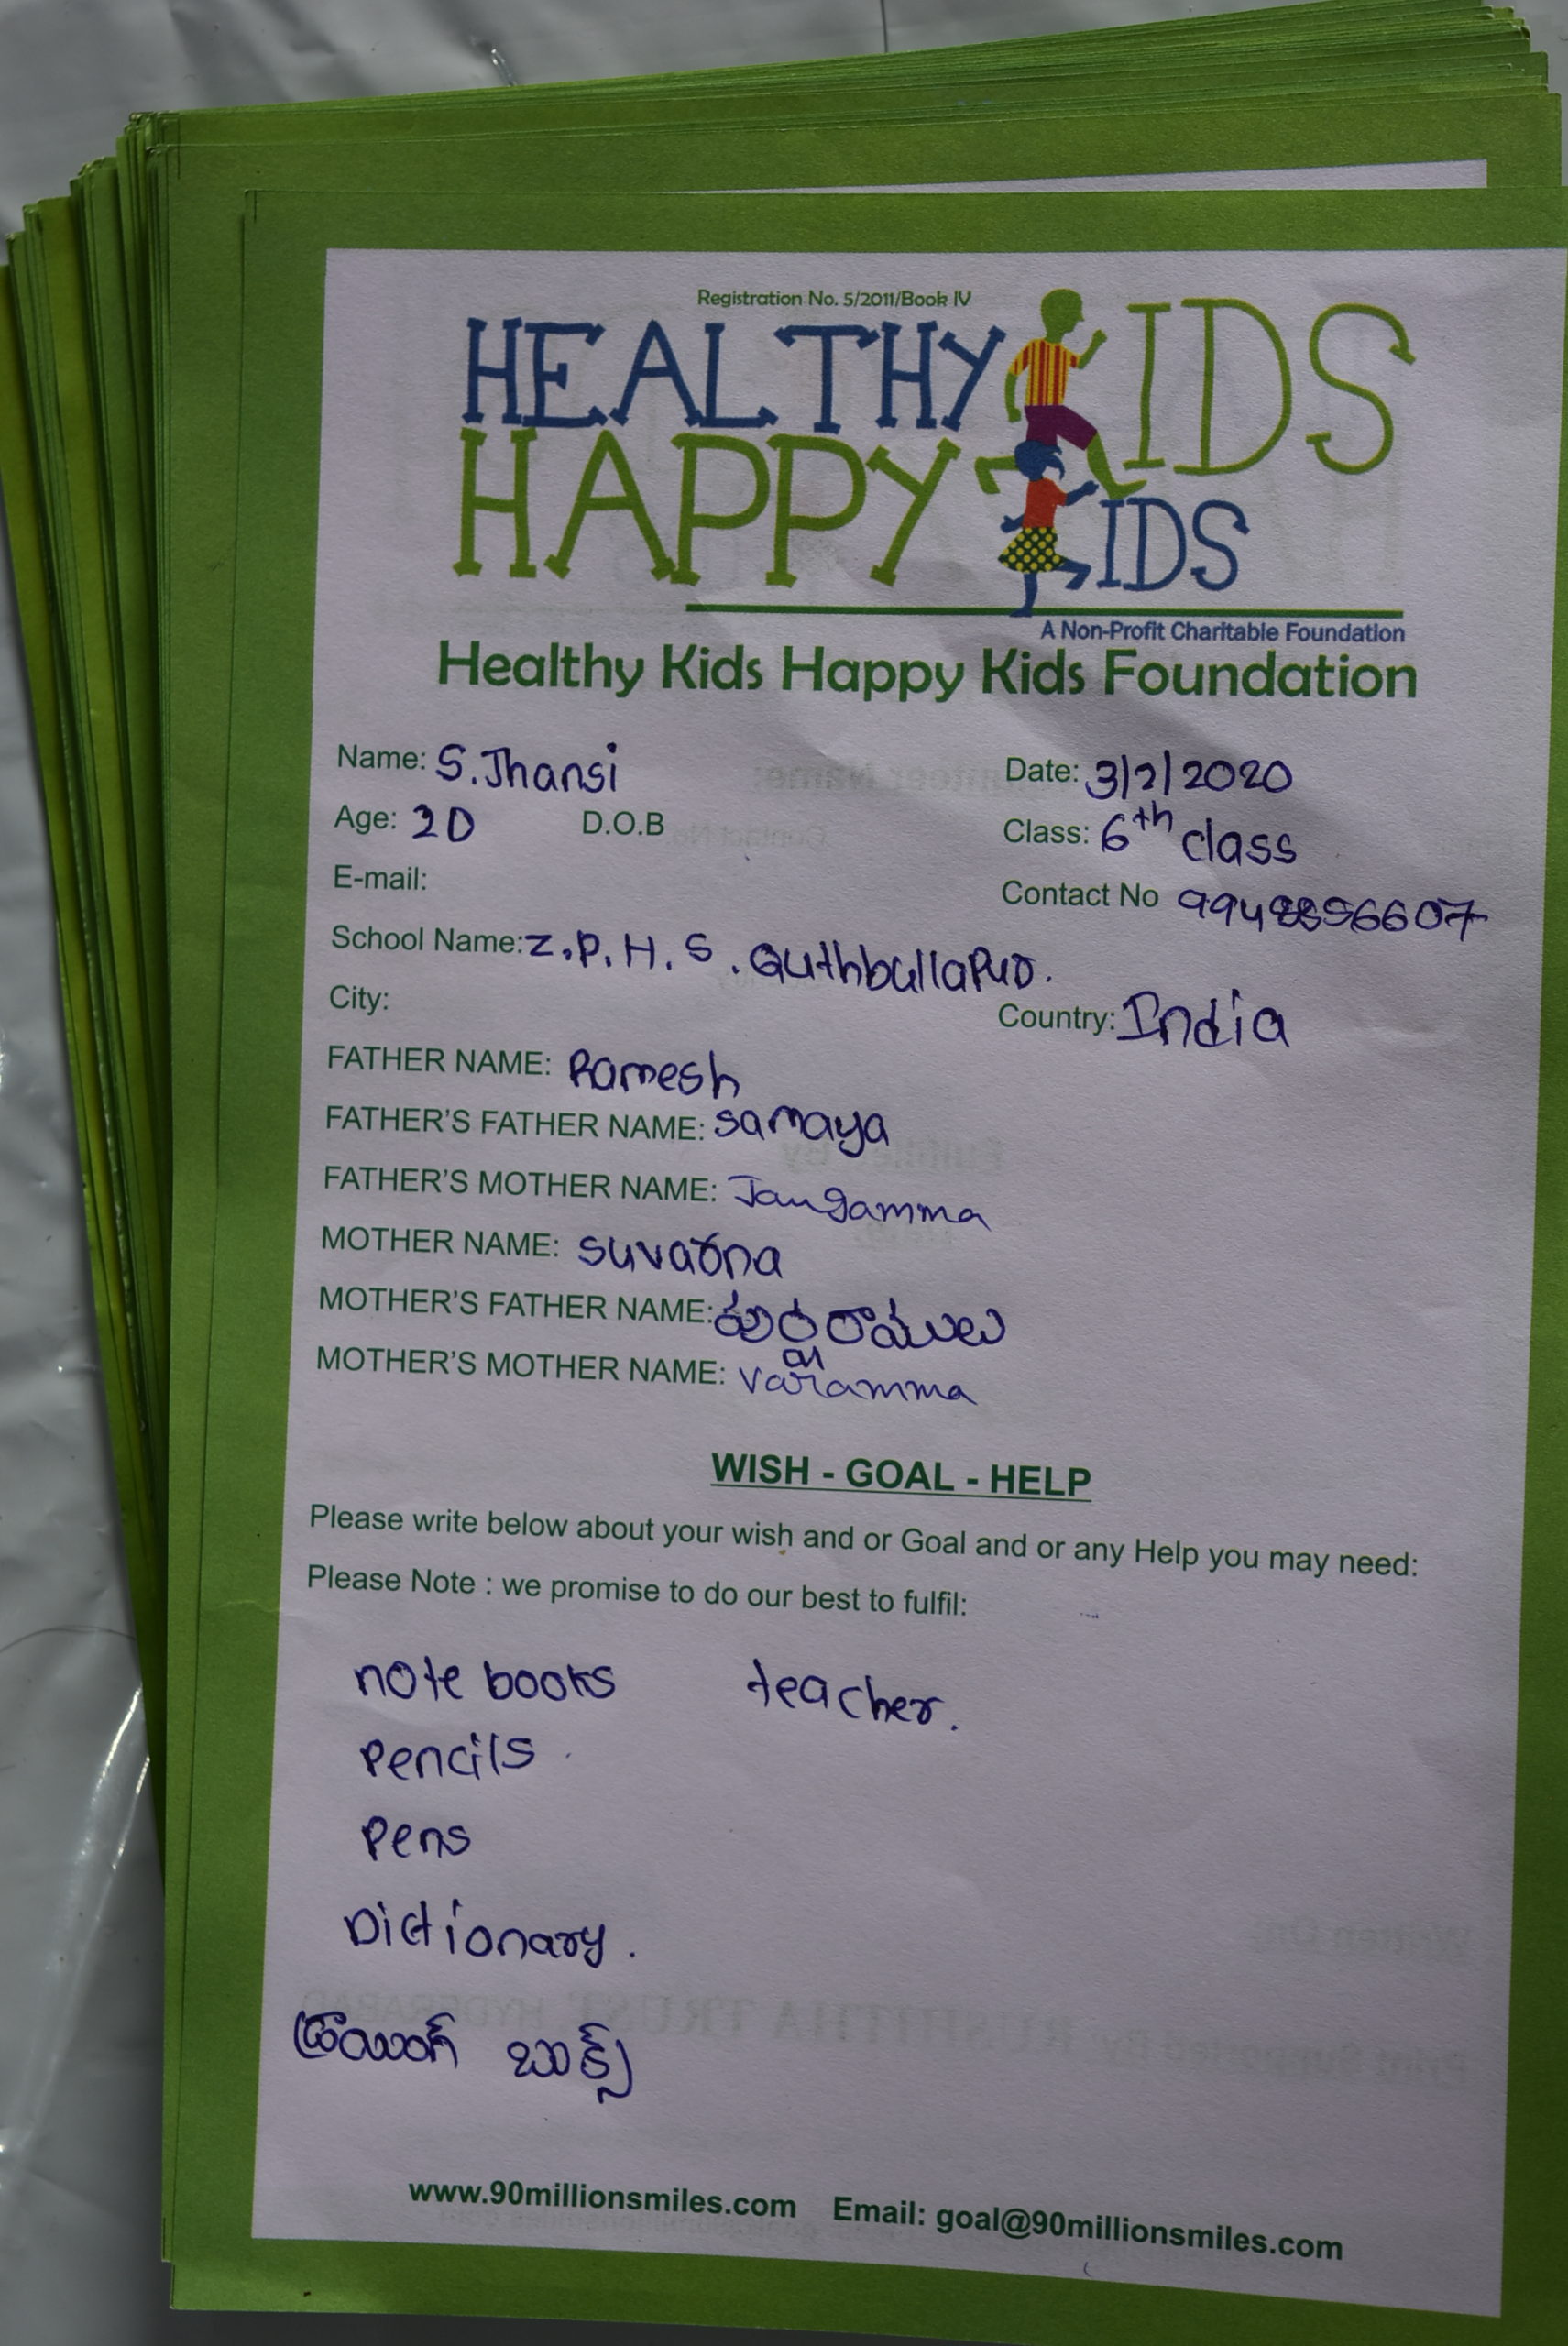 Registration No. 5/2011/Book IV
HEALTHY KIDS
HAPPY KIDS
A Non-Profit Charitable Foundation
Healthy Kids Happy Kids Foundation
Name: S. Jhansi Date: 3/2/2020
Age: 20 D.O.B Class: 6th class
E-mail: Contact No
School Name: Z.P.H.S. Quthbullapur.
City: Country: India
FATHER NAME: Ramesh
FATHER'S FATHER NAME: samaya
FATHER'S MOTHER NAME: Jangamma
MOTHER NAME: suvarna
MOTHER'S FATHER NAME:
MOTHER'S MOTHER NAME: varamma
WISH - GOAL - HELP
Please write below about your wish and or Goal and or any Help you may need:
Please Note : we promise to do our best to fulfil:
note books teacher.
pencils.
pens
Dictionary.
డ్రాయింగ్ బుక్స్
www.90millionsmiles.com Email: goal@90millionsmiles.com